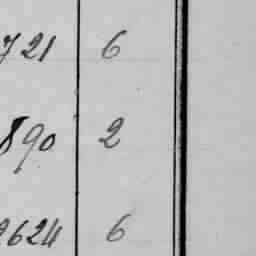 721 6
890 2
9624 6